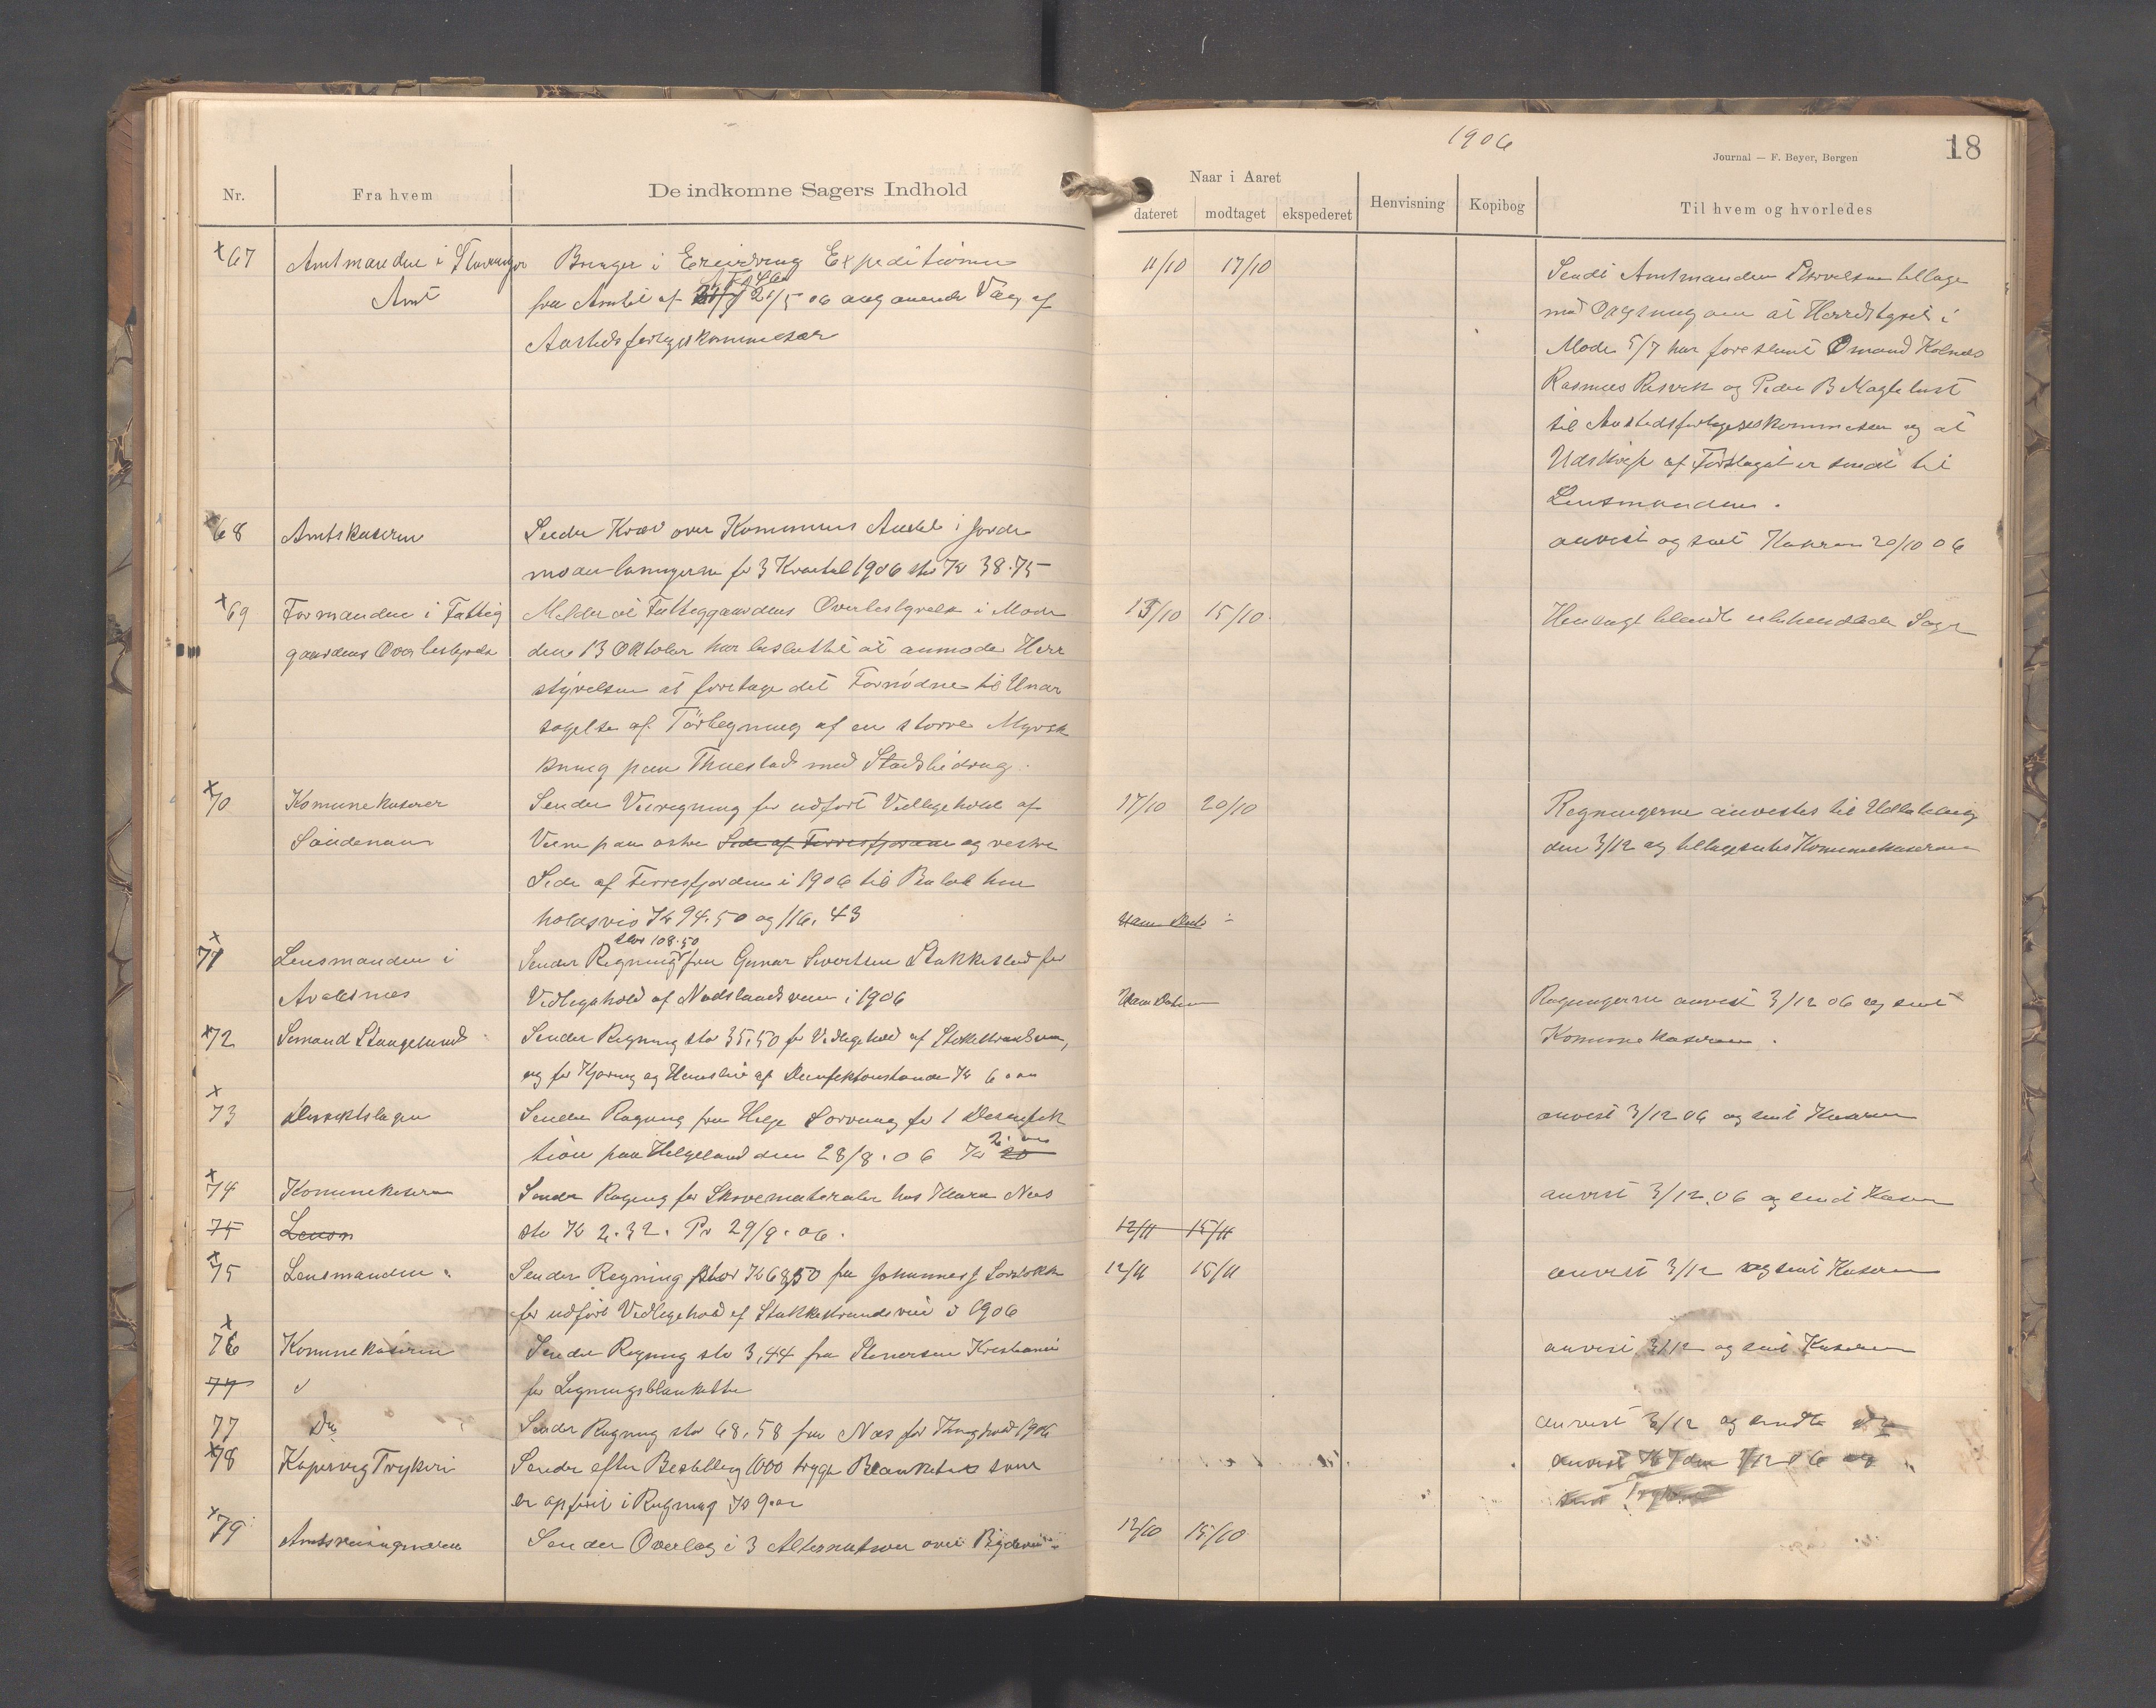 1906
18
Journal — F. Beyer, Bergen
Nr.
Fra hvem
De indkomne Sagers Indhold
Naar i Aaret
dateret
modtaget
ekspederet
Henvisning
Kopibog
Til hvem og hvorledes
x 67
Amtmanden i Stavanger
Amt
Bringer i Erindring Expeditionen
fra Amtet af 21/5 06 angaaende Valg af
Aastedsfortegskommesær
11/10
17/10
Sendt Amtmanden Skrivelsen tilbage
med Oplysning om at Herredstyret i
Møde 5/7 har foreslaaet Omund Kolnes
Rasmus Røsvik og Peder B Magelust
til Aastedsfortegseskommesær og at
Udskrift af Forslaget er sendt til
Lensmanden.
x 68
Amtskaseren
Sender Krav over Kommunens Andel i Jorde
moderlønningerne for 3 Kvartal 1906 stor Kr 38.75
anvist og sent Kaseren 20/10 06
x 69
Formanden i Fattig
gaardens Overbestyrelse
Melder at Fattiggaardens Overbestyrelse i Møde
den 13 Oktober har besluttet at anmode Herr
styrelsen at foretage det Fornødne til Under
søgelse af Tørlegning af en større Myrstr
kning paa Thuestad med Statsbidrag.
13/10
15/10
Henlagt blandt ubehandlede Sager
x 70
Komunekaserer
Søndenaa
Sender Veiregning for udført Vedligehold af
Veiene paa østre Side af Førresfjorden og vestre
Side af Førresfjorden i 1906 til Beløb hen
holdsvis Kr 94.50 og 116.43
17/10
20/10
Regningerne anvistes til Udbetaling
den 3/12 og tilbagesentes Kommunekaseren
x 71
Lensmanden i
Avaldsnes
stor 108.50
Sender Regning fra Gunar Sivertsen Stakkestad for
Vedligehold af Nodslandsveien i 1906
Uden Datum
Regningerne anvist 3/12 06 og sent
Kommunekaseren.
x 72
Simond Stangeland
Sender Regning stor 35,50 for Vedligehold af Stokkestrandsveien,
og for Kjøring og Husleie af Desinfektionstanden Kr 6.00
x 73
Distriktslægen
Sender Regning fra Helge Sørvaag for 1 Desinfek
tion paa Helgeland den 28/8.06 Kr
anvist 3/12 06 og sent Kaseren
x 74
Kommunekaseren
Sender Regning for Skrivematerialer hos Klara Næs
stor Kr 2.32. Pr 29/9.06.
anvist 3/12.06 og sendt Kaseren
75
Lensm
12/11
15/11
x 75
Lensmanden.
Sender Regning stor Kr 68,50 fra Johannes J
for udført Vedligehold af Stakkestrandsveien i 1906
12/11
15/11
anvist 3/12 og sent Kaseren
x 76
Kommunekaseren
Sender Regning stor 3,44 fra Stenersen Kristiania
for Ligningsblanketter
anvist 3/12 og sent Kaseren
77
77
Do
Sender Regning stor 68.58 fra Næs for Thinghold 1906
anvist 3/12 og sendt do
x 78
Kopervig Trykeri
Sender efter Bestilling 1000 trygte Blanketer som
er opført i Regning Kr 9.00
anvist Kr 7 den 3/12 06 og
sent Trykeri
x 79
Amtsveiingeniøren
Sender Overslag i 3 Alternativer over Bygdevei
12/10
15/10